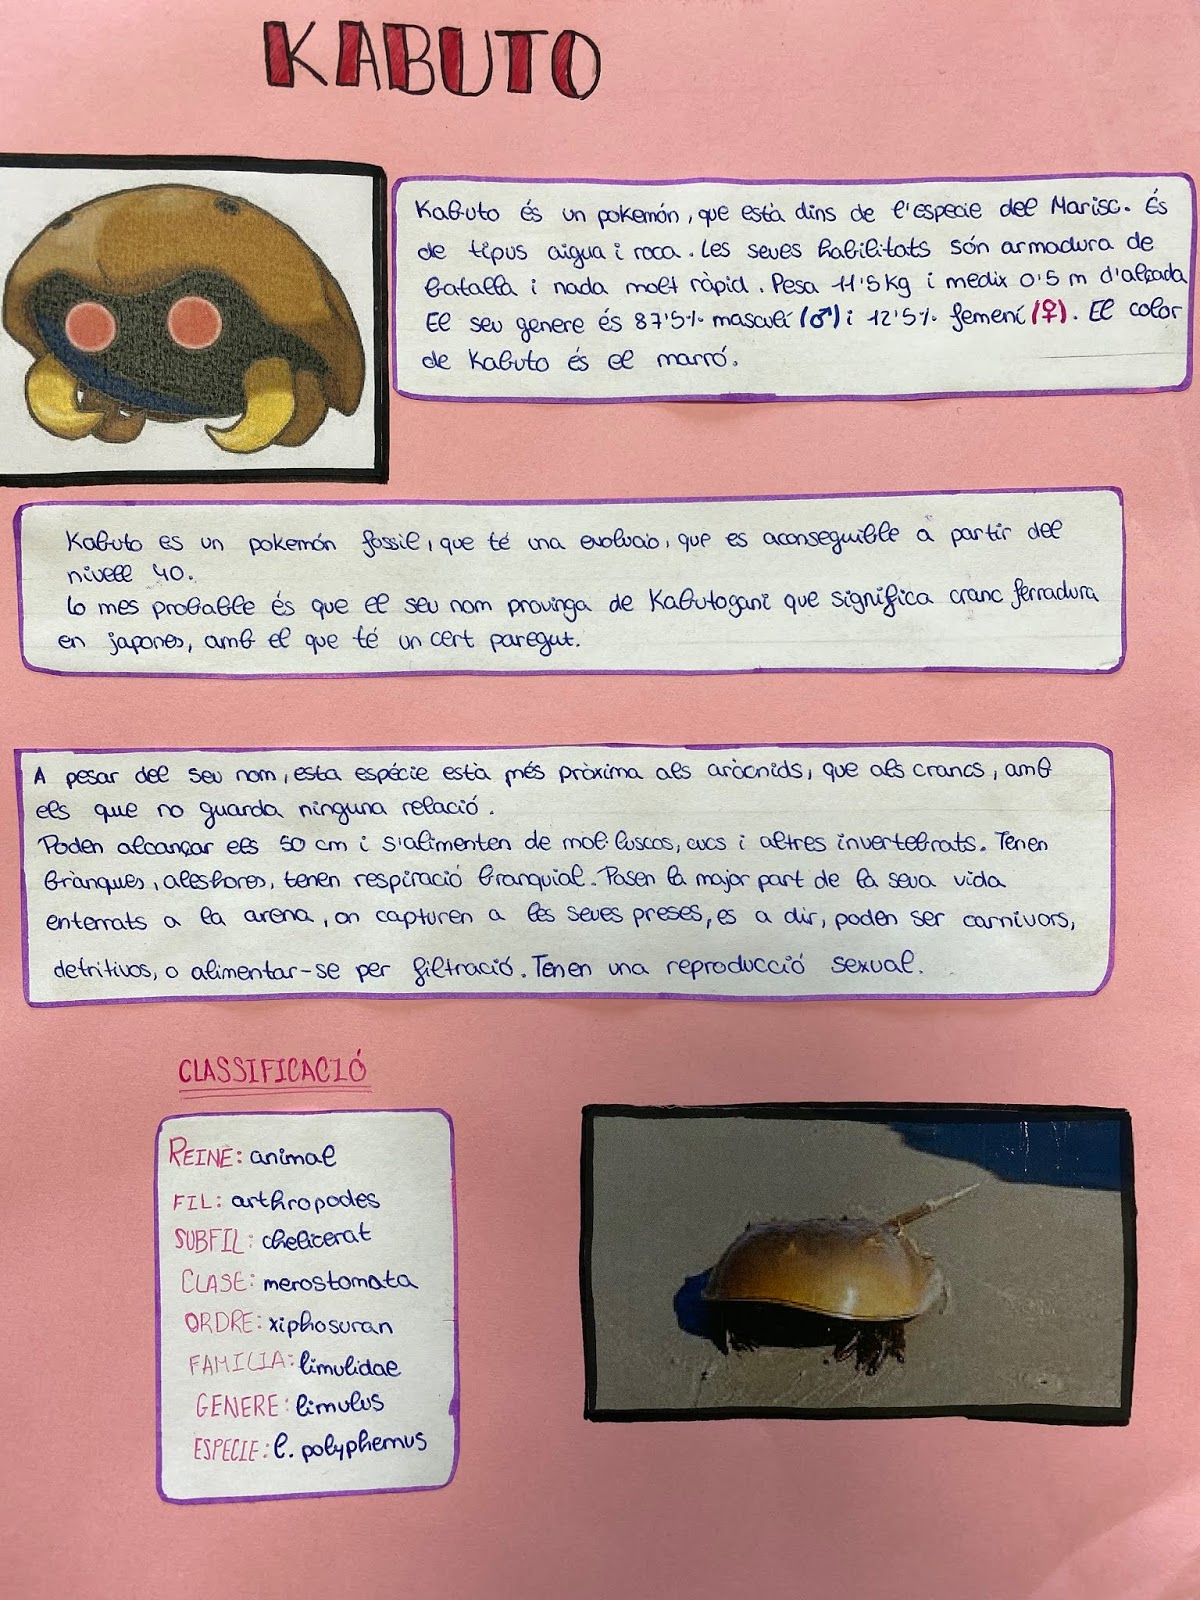 KABUTO
Kabuto és un pokemón, que està dins de l'especie del Marisc. És
de tipus aigua i roca. Les seves habilitats són armadura de
batalla i nada molt ràpid. Pesa 11'5 kg i medix 0'5 m d'alçada
El seu genere és 87'5% masculí (♂) i 12'5% femení (♀). El color
de Kabuto és el marró.
Kabuto es un pokemón fossil, que té una evoluaió, que es aconseguible a partir del
nivell 40.
Lo mes probable és que el seu nom provinga de Kabutogani que significa cranc ferradura
en japones, amb el que té un cert paregut.
A pesar del seu nom, esta espécie està més pròxima als aràcnids, que als crancs, amb
els que no guarda ninguna relació.
Poden alcançar els 50 cm i s'alimenten de mol·luscos, cucs i altres invertebrats. Tenen
brànques, aleshores, tenen respiració branquial. Pasen la major part de la seva vida
enterrats a la arena, on capturen a les seves preses, es a dir, poden ser carnívors,
detritivos, o alimentar-se per filtració. Tenen una reproducció sexual.
CLASSIFICACIÓ
REINE: animal
FIL: arthropodes
SUBFIL: chelicerat
CLASE: merostomata
ORDRE: xiphosuran
FAMILIA: limulidae
GENERE: limulus
ESPECIE: l. polyphemus